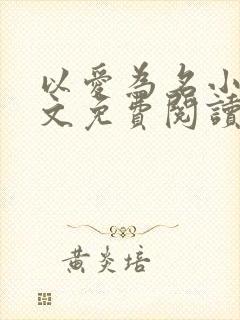 以愛為名小
文免費閱讀
黃炎培